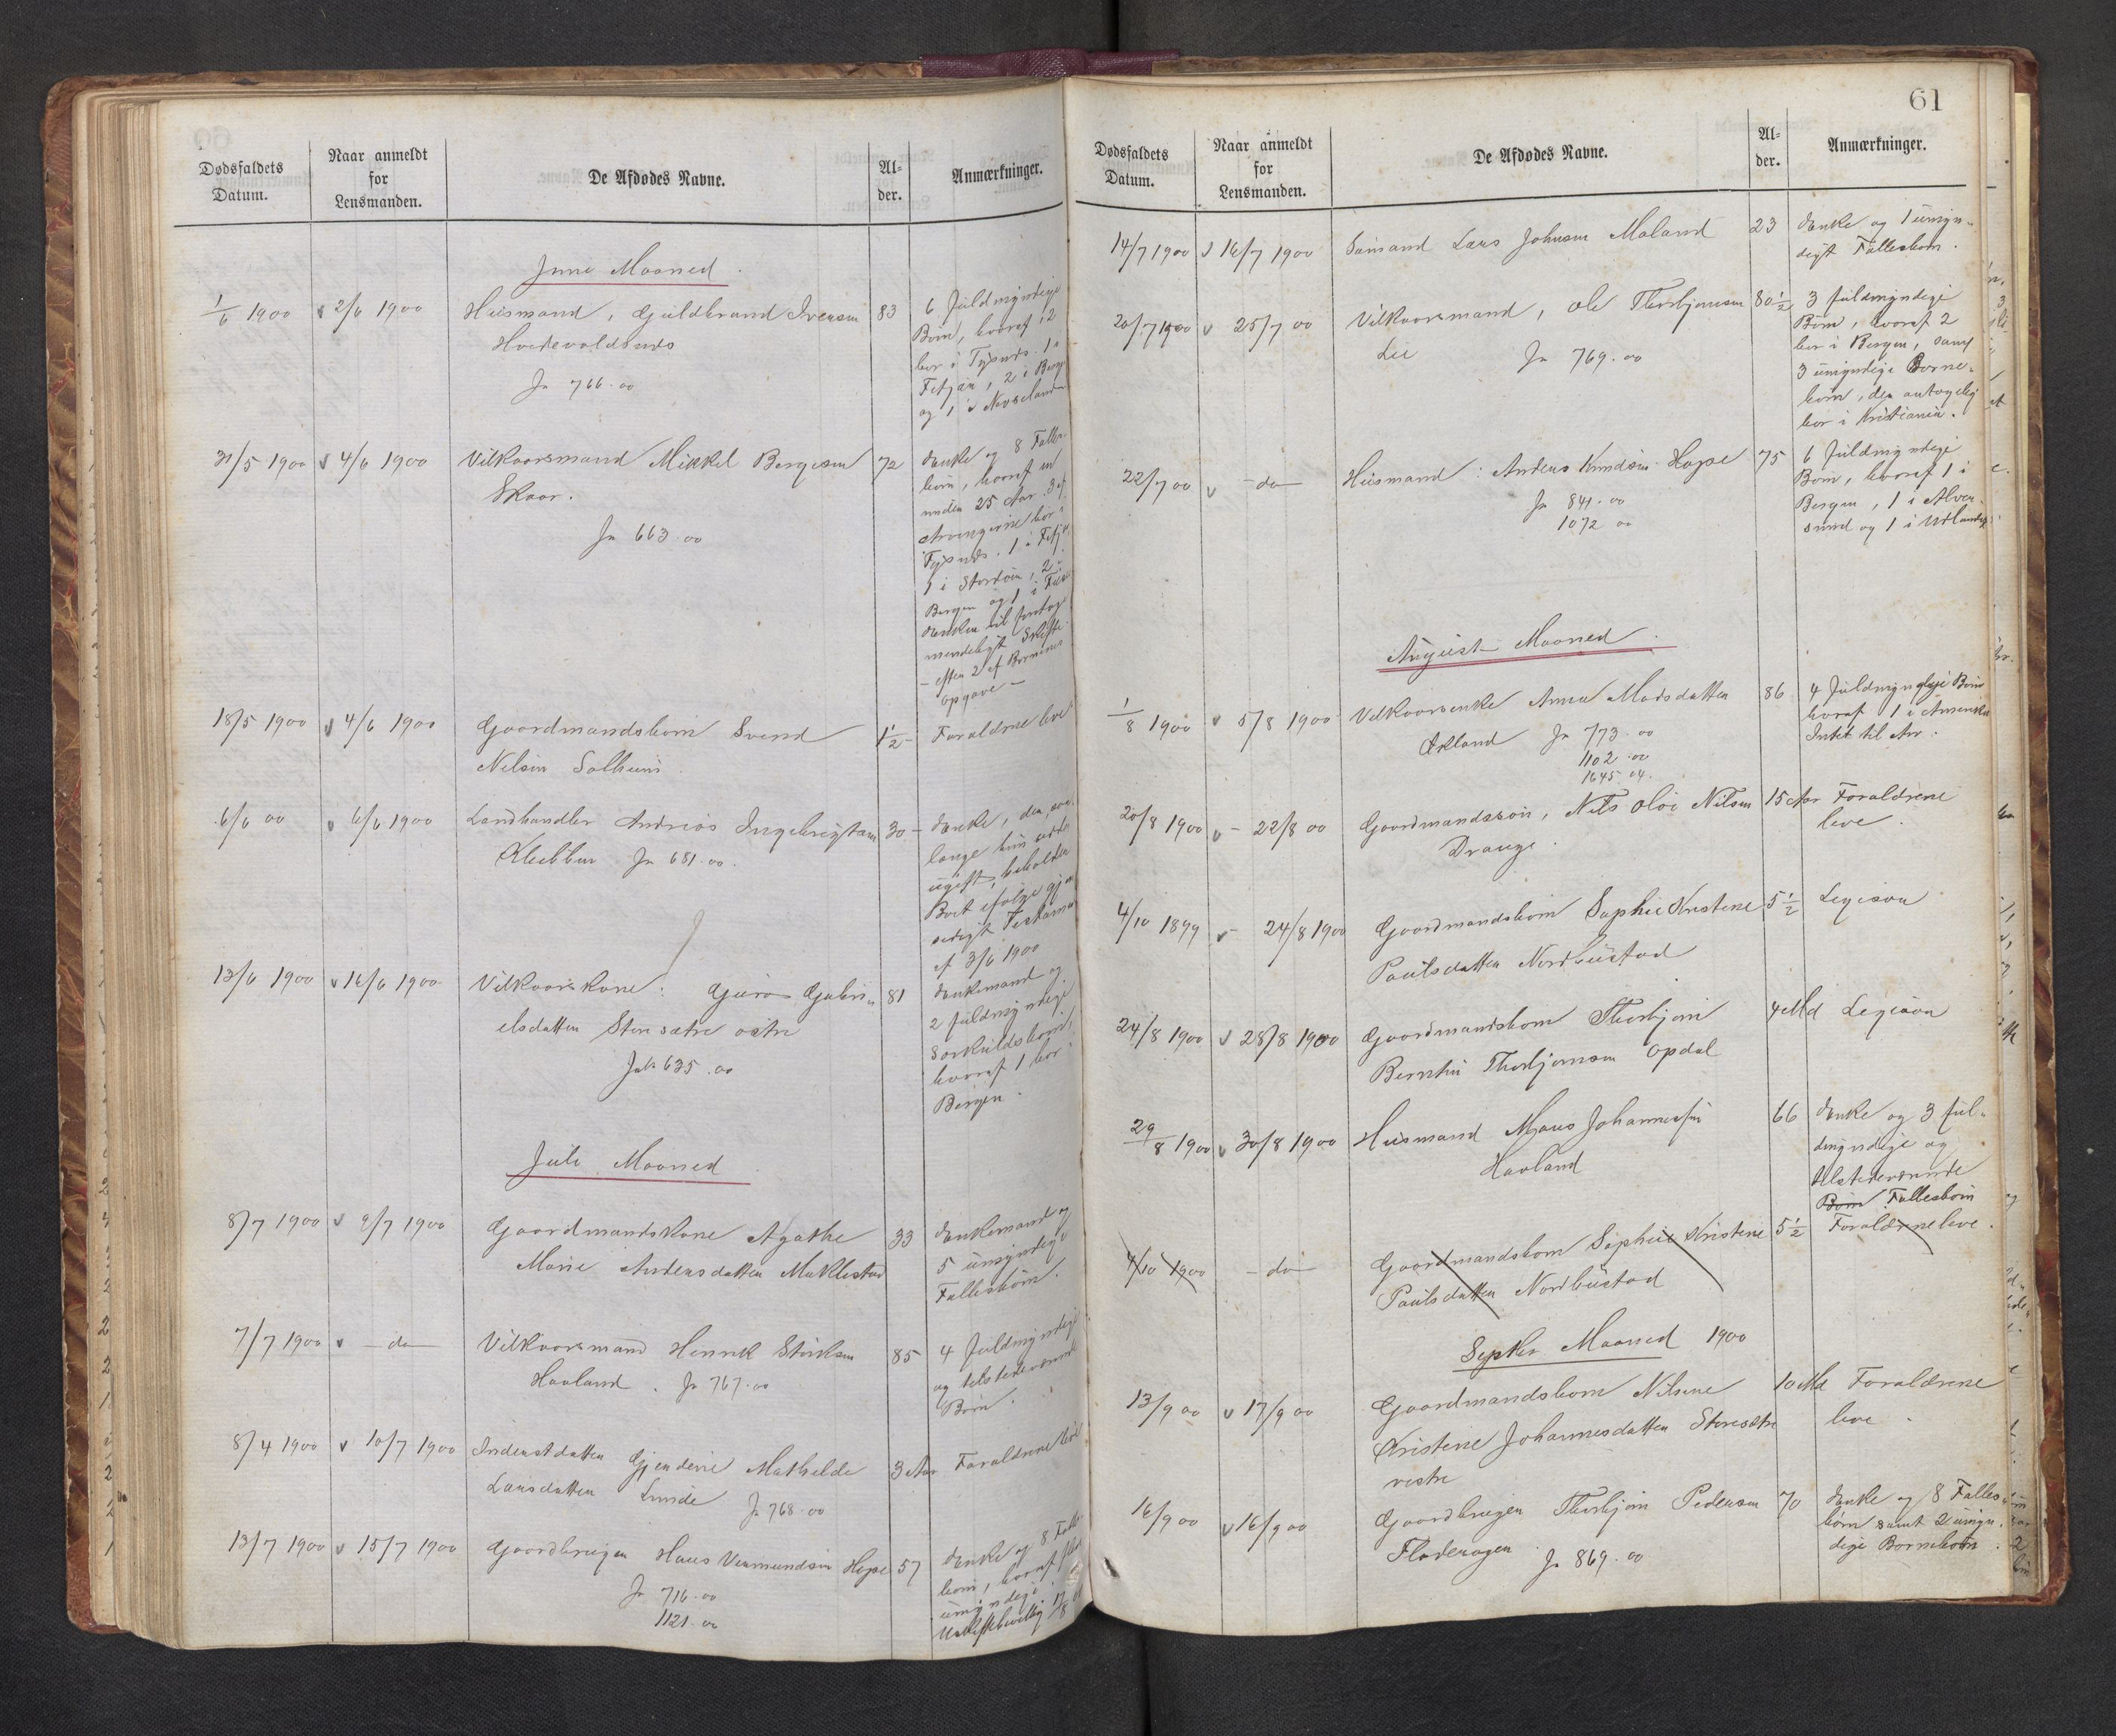 Dødsfaldets
Datum.
Naar anmeldt
for
Lensmanden.
De Afdødes Navne.
Al-
der.
Anmærkninger.
Juni Maaned
1/6 1900 v 2/6 1900 Husmand, Guldbrand Iversen 83
Hovdevoldsnes
Jn 766.00
6 Fuldmyndige
Børn, hvoraf 2
bor i Tysnes. 1 i
Fitjar, 2 i Berg
og 1 i Nordland
31/5 1900 v 4/6 1900 Vilkaarsmand Mikkel Bergesen 72
Skaar.
Jn 663.00
Enke og 8 Fælles
børn, hvoraf en
under 25 Aar. 3 af
Arvingerne bor i
Tysnes. 1 i Fitjar
1 i Stordøen, 2 i
Bergen og 1 i
Enken vil foretage
mindeligt Skifte
- efter 2 af Børnenes
Opgave -
18/5 1900 v 4/6 1900 Gaardmandsbørn Svend 1½ - Forældrene leve
Nilsen Solheim
6/6 00 v 6/6 1900 Landhandler Andreas Ingebrigtsen 30 -
Klubben Jn 681.00.
Enke, der, saa-
længe hun sidder
ugift, beholder
Boet ifølge gjen
sidigt Testament
af 3/6 1900
13/6 1900 v 16/6 1900 Vilkaarskone: Guro Gabri- 81
elsdatter Storesætre østre
Jn 635.00
Enkemand og
2 fuldmyndige
Særkuldsbørn,
hvoraf 1 bor i
Bergen.
Juli Maaned
8/7 1900 v 9/7 1900 Gaardmandskone Agathe 33
Marie Andersdatter Meklestad
Enkemand og
5 umyndige
Fællesbørn.
7/7 1900 v - do - Vilkaarsmand Henrik Størksen 85
Haaland. Jn 767.00
4 fuldmyndige
og tilstedeværende
Børn.
8/4 1900 v 10/7 1900 Inderstdatter Gjendine Mathilde 3 Aar Forældrene leve
Larsdatter Lunde Jn 768.00
13/7 1900 v 15/7 1900 Gaardbruger Hans Vermundsen Hope 57
Jn 716.00
1121.00
Enke og 8 Fælles
børn, hvoraf flere
umyndige.
Uskiftebevilling 17/8
61
Dødsfaldets
Datum.
Naar anmeldt
for
Lensmanden.
De Afdødes Navne.
Al-
der.
Anmærkninger.
14/7 1900 v 16/7 1900 Sømand Lars Johnsen Moland 23
Enke og 1 umyn-
digt Fællesbørn.
20/7 1900 v 25/7 00 Vilkaarsmand, Ole Thorbjørnsen 80½
Lie Jn 769.00
3 fuldmyndige
Børn, hvoraf 2
bor i Bergen, samt
3 umyndige Børne-
børn, der antagelig
bor i Kristiania.
22/7 00 v - do - Husmand: Anders Knudsen Hope 75
Jn 841.00
1072 00
6 fuldmyndige
Børn, hvoraf 1 i
Bergen, 1 i Alver-
sund og 1 i Udlandet
August Maaned
1/8 1900 v 5/8 1900 Vilkaarsenke Anna Madsdatter 86
Økland Jn 773.00
1102.00
1645.04.
4 fuldmyndige Børn
hvoraf 1 i Amerika
Intet til Arv.
20/8 1900 v - 22/8 00 Gaardmandssøn, Nils Olai Nilsen 15 Aar Forældrene
Drange. leve.
4/10 1899 v - 24/8 1900 Gaardmandsbørn Sophie Kristene 5½ Ligesaa
Paulsdatter Nordbustad
24/8 1900 v 28/8 1900 Gaardmandsbørn Thorbjørn 4 Md Ligesaa
Berntin Thorbjørnsen Opdal
29/8 1900 v 30/8 1900 Husmand Maus Johannessen 66
Haaland
Enke og 3 ful-
dmyndige og
tilstedeværende
Børn Fællesbørn
4/10 1900 - do - Gaardmandsbørn Sophie Kristene 5½ Forældrene leve.
Paulsdatter Nordbustad
Septbr Maaned 1900
13/9 00 v 17/9 00 Gaardmandsbørn Nilsine 10 Md Forældrene
Kristine Johannesdatter Storesætre leve.
vestre
16/9 00 v 16/9 00 Gaardbruger Thorbjørn Pedersen 70
Fladeragen Jn 869.00
Enke og 8 Fælles-
børn samt 2 umyn-
dige Børnebørn.